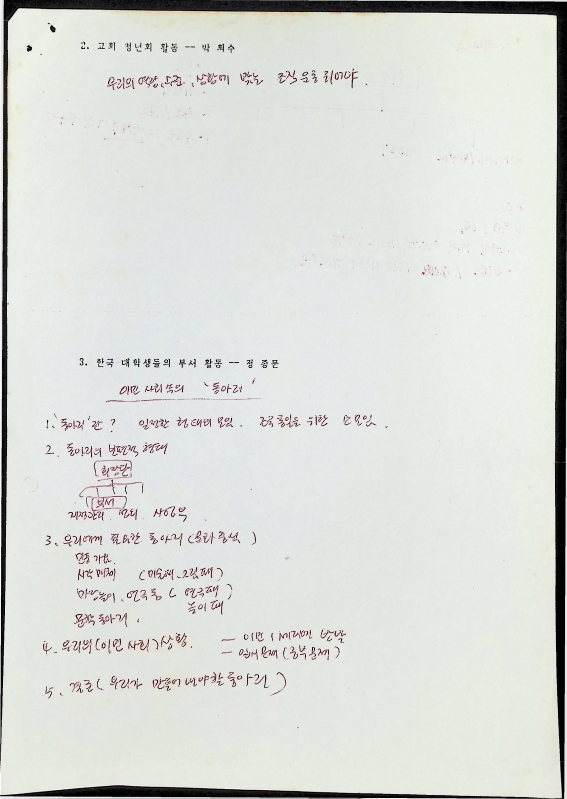 2. 교회 청년회 활동 -- 박 희수
우리의 역량, 수준, 상황에 맞는 조직운용 되어야.
3. 한국 대학생들의 부서 활동 -- 정 증문
이민 사회 속의 "동아리"
1. "동아리"란? 일정한 형태의 모임. 조국통일을 위한 소모임.
2. 동아리의 보편적 형태
회장단
부서
재정관리. 사업부
3. 우리에게 필요한 동아리 (문화중심)
민중가요.
시각매체 (미술패, 그림패)
마당놀이, 연극등 (연극패)
놀이패
문학동아리.
4. 우리의 (이민 사회) 상황. — 이민 1세대만 반발
— 언어문제 (공부문제)
5. 결론 (우리가 만들어내야할 동아리)